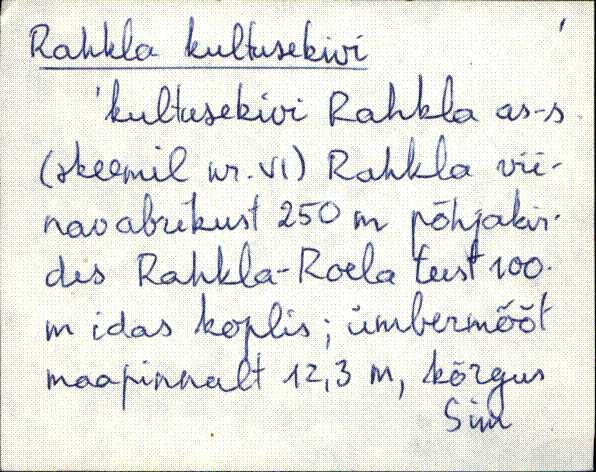 Rahkla kultusekivi
'kultusekivi Rahkla as-s
(skeemil nr. VI) Rahkla vii-
navabrikust 250 m põhjakir-
des Rahkla-Roela teest 100.
m idas koplis; ümbermõõt
maapinnalt 12,3 m, kõrgus
Sim